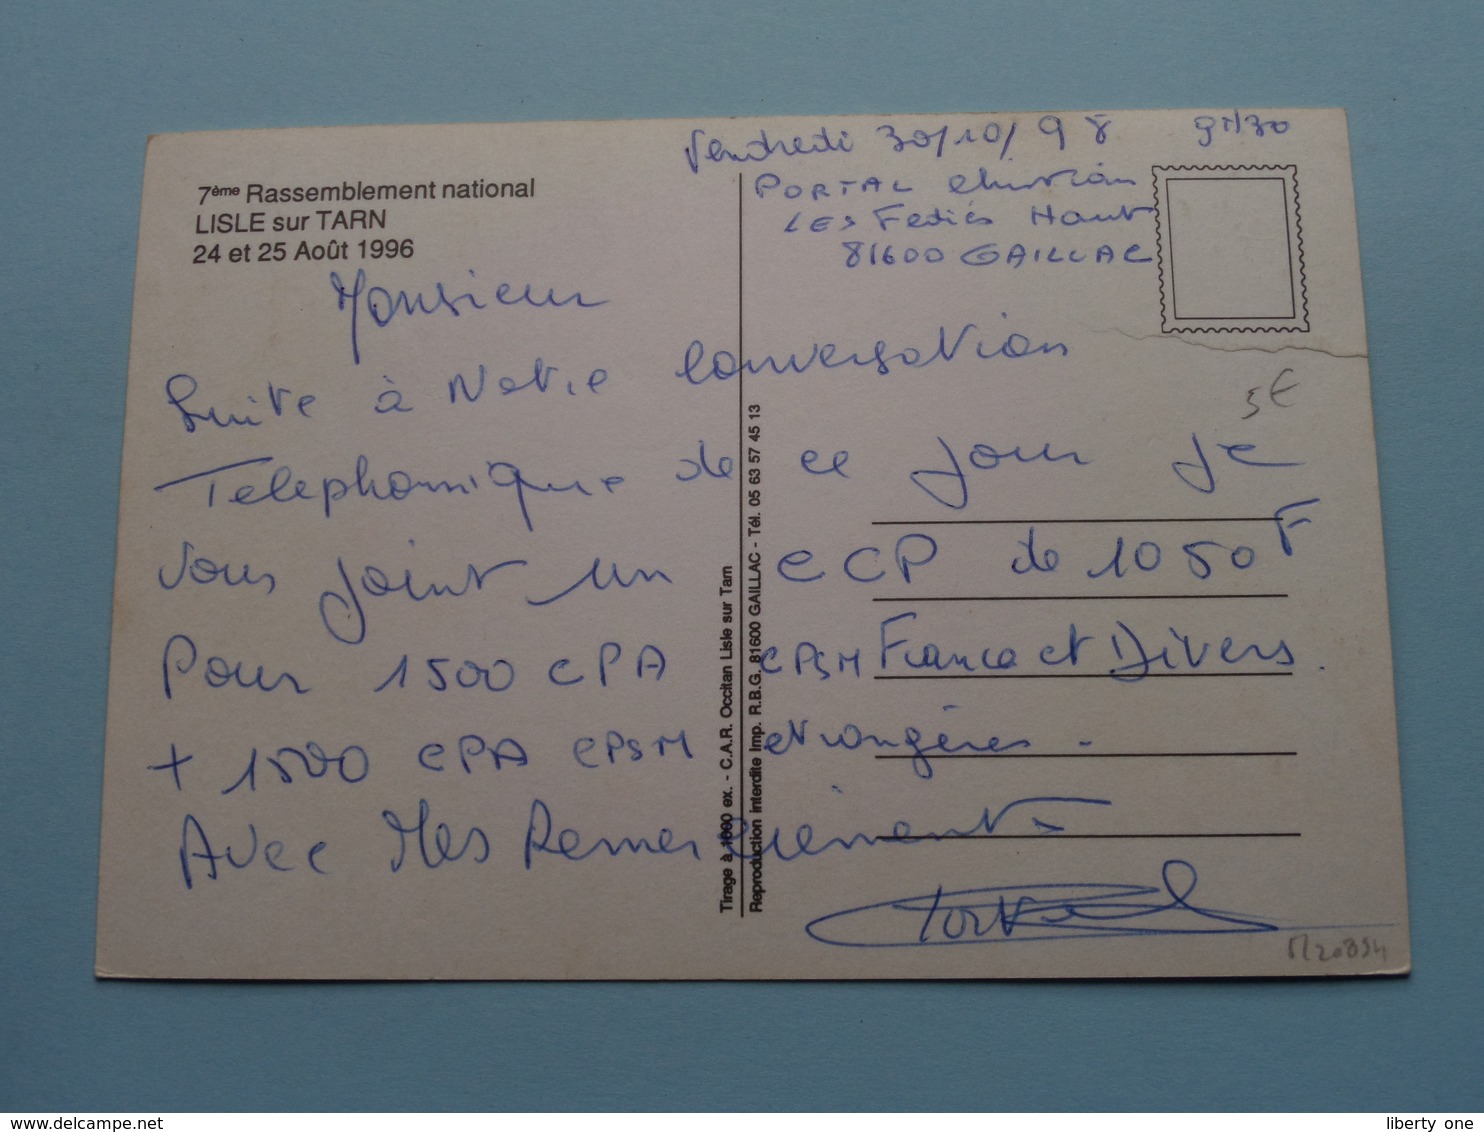 Vendredi 30/10/98 9h30
PORTAL Christian
LES Fediès Haut
81600 GAILLAC
7ème Rassemblement national
LISLE sur TARN
24 et 25 Août 1996
Monsieur
Suite à Notre Conversation
Telephonique de ce jour je
Vous joint un CCP de 1050F
Pour 1500 CPA CPSM France et Divers.
+ 1500 CPA CPSM etrangères -
Avec Mes Remerciements
Portal
3€
Tirage à 1000 ex. - C.A.R. Occitan Lisle sur Tarn
Reproduction interdite Imp. R.B.G. 81600 GAILLAC - Tél. 05 63 57 45 13
delcampe.net
liberty one